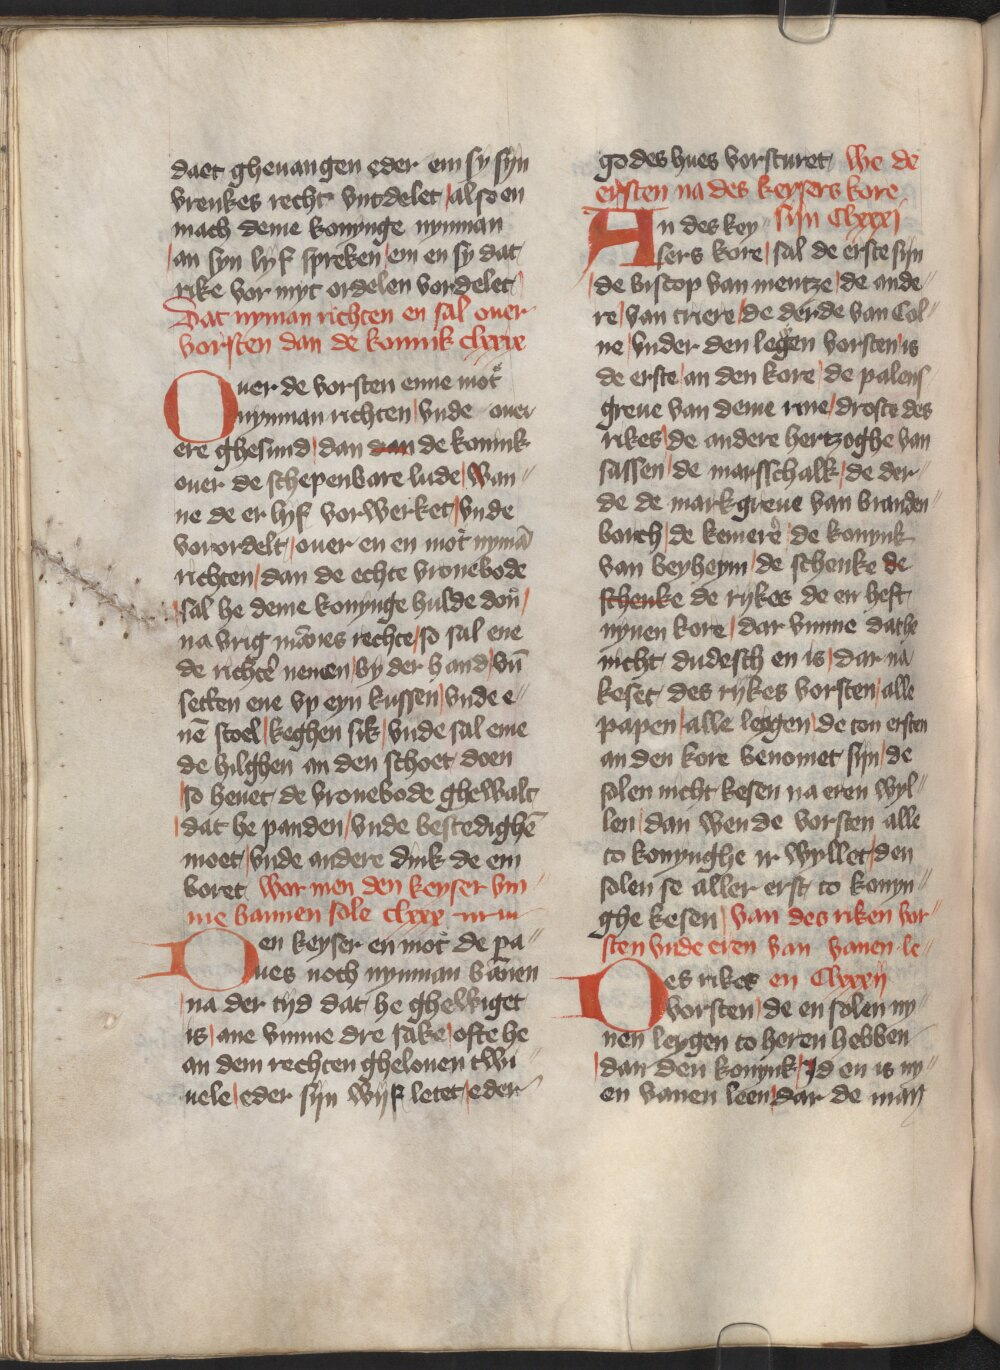 daet gheuangen eder em sy syn
vrenkes recht vntdelet / also en
mach deme konynge nymman
/ an syn lyf spreken / em en sy dat
rike vor myt ordelen vordelet
Dat nyman richten en sal ouer
vorsten dan de konnik clxxix
Ouer de vorsten enne mot
nymman richten / vnde ouer
ere ghesund / dan dan de konink
ouer de schepenbare lude / wan"
ne de er lyf vorwerket / vnde
vorordelt / ouer en en mot nymā
richten / dan de echte vronebode
/ sal he deme konynge hulde don /
na vrig mānes rechte / so sal ene
de richter nemen / by der hand / vn̄
setten ene vp eyn kussen / vnde e"
nē stoel / keghen sik / vnde sal eme
de hilghen an den schoet doen
/ so heuet de vronebode ghewalt
/ dat he panden / vnde bestedighē
moet / vnde andere dink de em
boret Wor men den keyser vm"
me bannen sole clxxx
Den keyser en mot de pa"
ues noch nymman bānen
/ na der tyd dat he ghewiget
is / ane vmme dre sake / ofte he
an dem rechten ghelouen twi"
uele / eder syn wyf letet / eder
godes hues vorsturet We de
ersten na des keysers kore
An des key" sijn Clxxxj
sers kore / sal de erste sijn
/ de biscop van mentze / de ande"
re / van triere / de derde van Col"
ne / vnder den legen vorsten is
de erste / an den kore / de palens
greue van deme rine / droste des
rikes / de andere hertzoghe van
sassen / de marsschalk / de der"
de de markgreue van branden"
borch / de kemere / de konynk
van beyheym / de schenke de
schenke de rykes de en heft
nynen kore / dar vmme dat he
nicht dudesch en is / dar na
keset des rykes vorsten / alle
papen / alle leygen / de ton ersten
an den kore benomet syn / de
solen nicht kesen na eren wyl"
len / dan wen de vorsten alle
to konynghe ir wyllet / den
solen se aller erst to konyn"
ghe kesen / Van des riken vor"
sten vnde eren van vanen le"
Des rikes en Clxxxij
vorsten / de en solen ny
nen leygen to heren hebben
/ dan den konynk / Id en is ny"
en vanen leen / dar de man